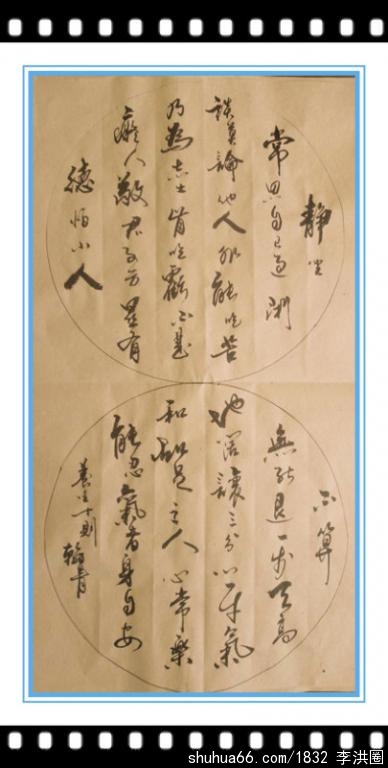 静坐
常思自己过闲
談莫論他人非能吃苦
乃為志士肯吃虧不是
癡人敬君子方显有
德怕小人
不算
無能退一步天高
地阔讓三分心平氣
和知足之人心常樂
能忍氣者身自安
養生十则
shuhua66.com/1832 李洪圈